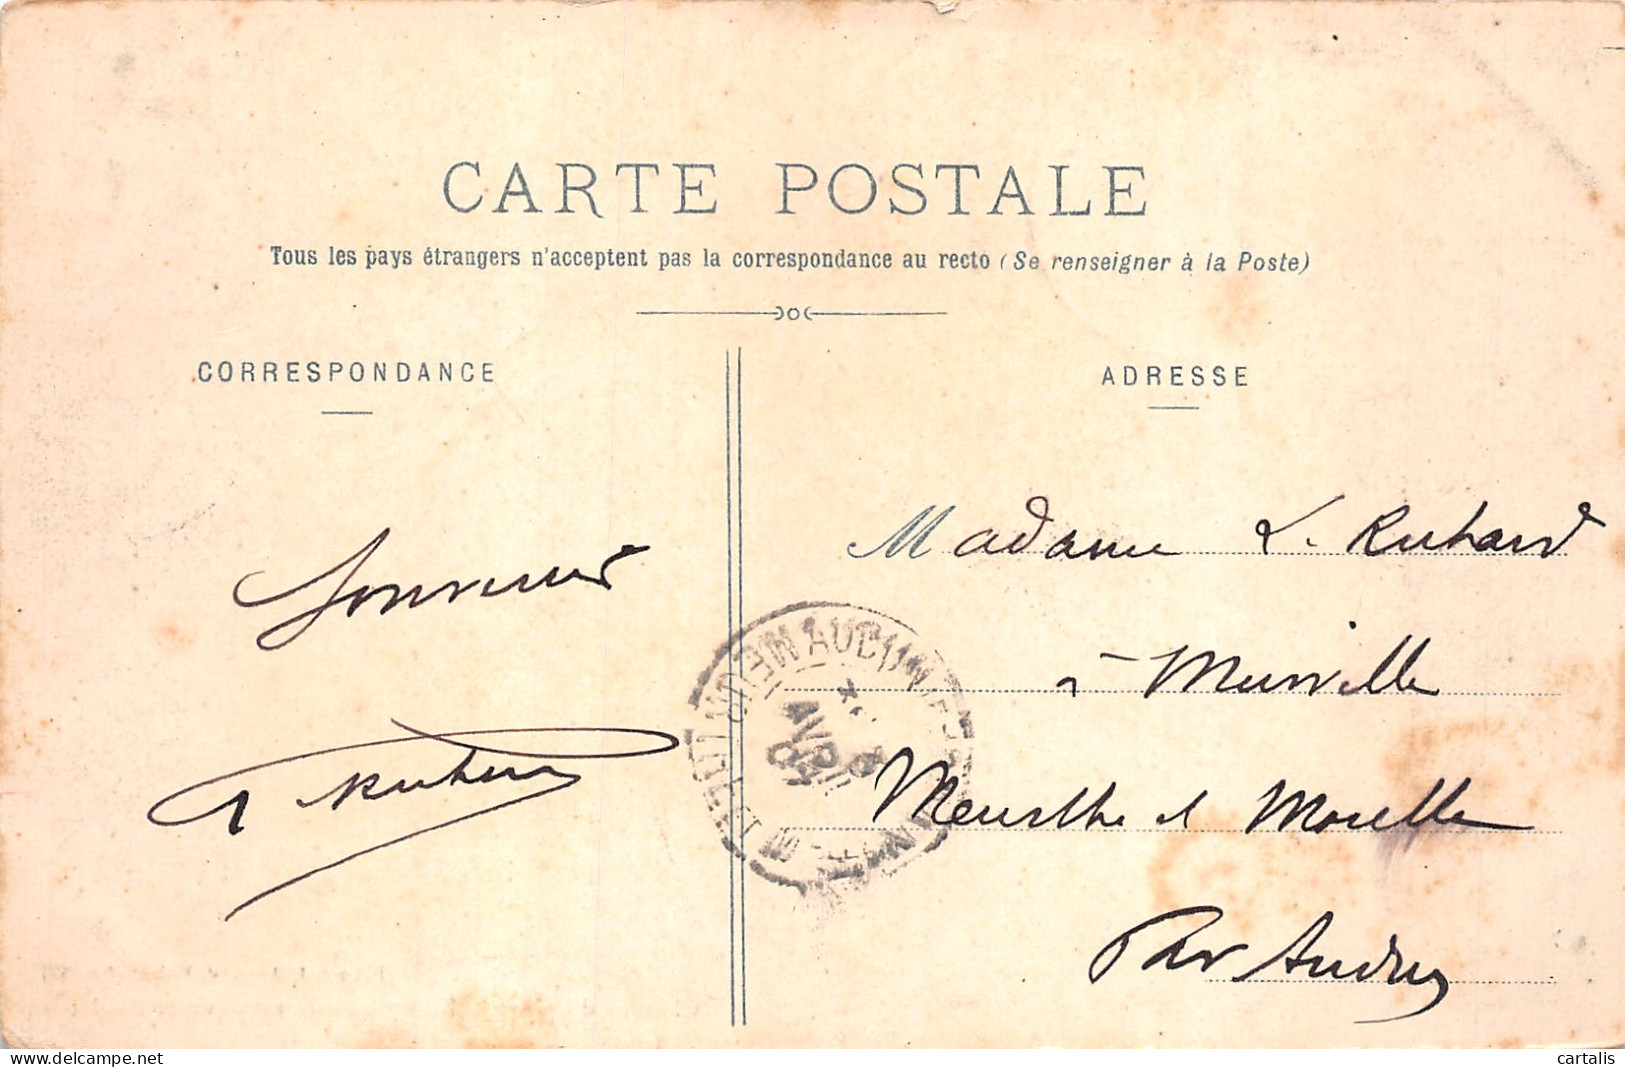 CARTE POSTALE
Tous les pays étrangers n'acceptent pas la correspondance au recto (Se renseigner à la Poste)
CORRESPONDANCE
ADRESSE
Souvenir
Madame L. Richard
à
Meurthe et Moselle
Par Audun
AVRIL
cartalis